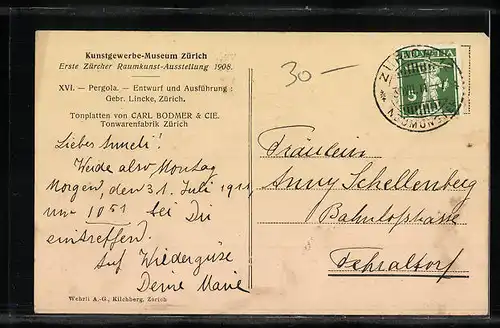 Kunstgewerbe-Museum Zürich
Erste Zürcher Raumkunst-Ausstellung 1908.
XVI. — Pergola. — Entwurf und Ausführung:
Gebr. Lincke, Zürich.
Tonplatten von CARL BODMER & CIE.
Tonwarenfabrik Zürich
30 —
HELVETIA
5
NEUMÜNST
Liebes Anneli!
Werde also Montag
Morgen, den 31. Juli 1911
um 10 51 bei Dir
eintreffen.
Auf Wiedergüse
Deine Marie
Fräulein
Anny Schellenberg
Bahnhofstrasse
Fehraltorf
Wehrli A.-G., Kilchberg, Zürich